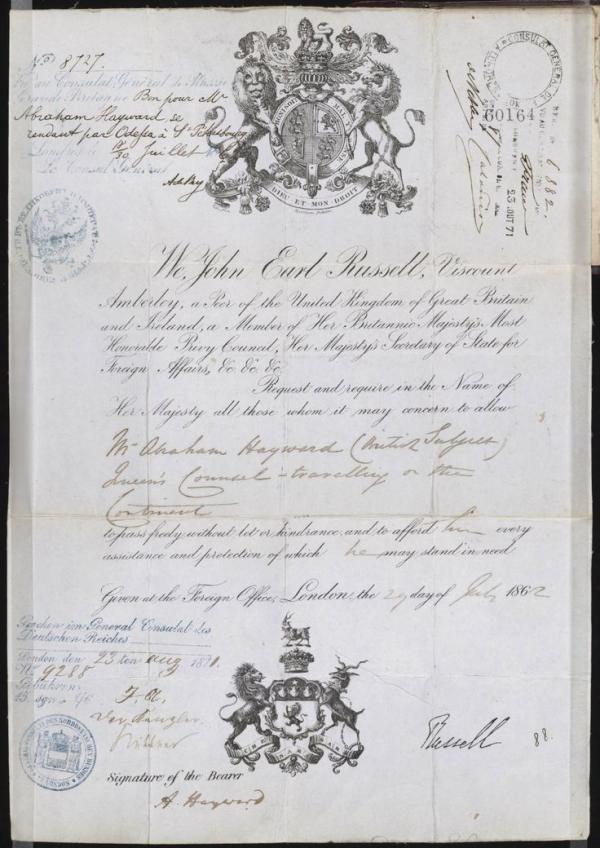 No 8727.
Bon pour Mr
Abraham Hayward se
rendant par Odessa à St Pétersbourg
Juillet
60164
6882
23 AOUT 71
DIEU ET MON DROIT
We, John Earl Russell, Viscount
Amberley, a Peer of the United Kingdom of Great Britain
and Ireland, a Member of Her Britannic Majesty's Most
Honorable Privy Council, Her Majesty's Secretary of State for
Foreign Affairs, &c. &c. &c.
Request and require in the Name of
Her Majesty all those whom it may concern to allow
Mr Abraham Hayward (British Subject)
Queen's Counsel - travelling on the
Continent
to pass freely without let or hindrance, and to afford him every
assistance and protection of which he may stand in need
Given at the Foreign Office, London, the 29 day of July 1862
Gesehen im General Consulat des
Deutschen Reiches
London den 23 ten Aug 1871.
No 9288
Gebühren
Der Kanzler
Russell
88.
Signature of the Bearer
A. Hayward